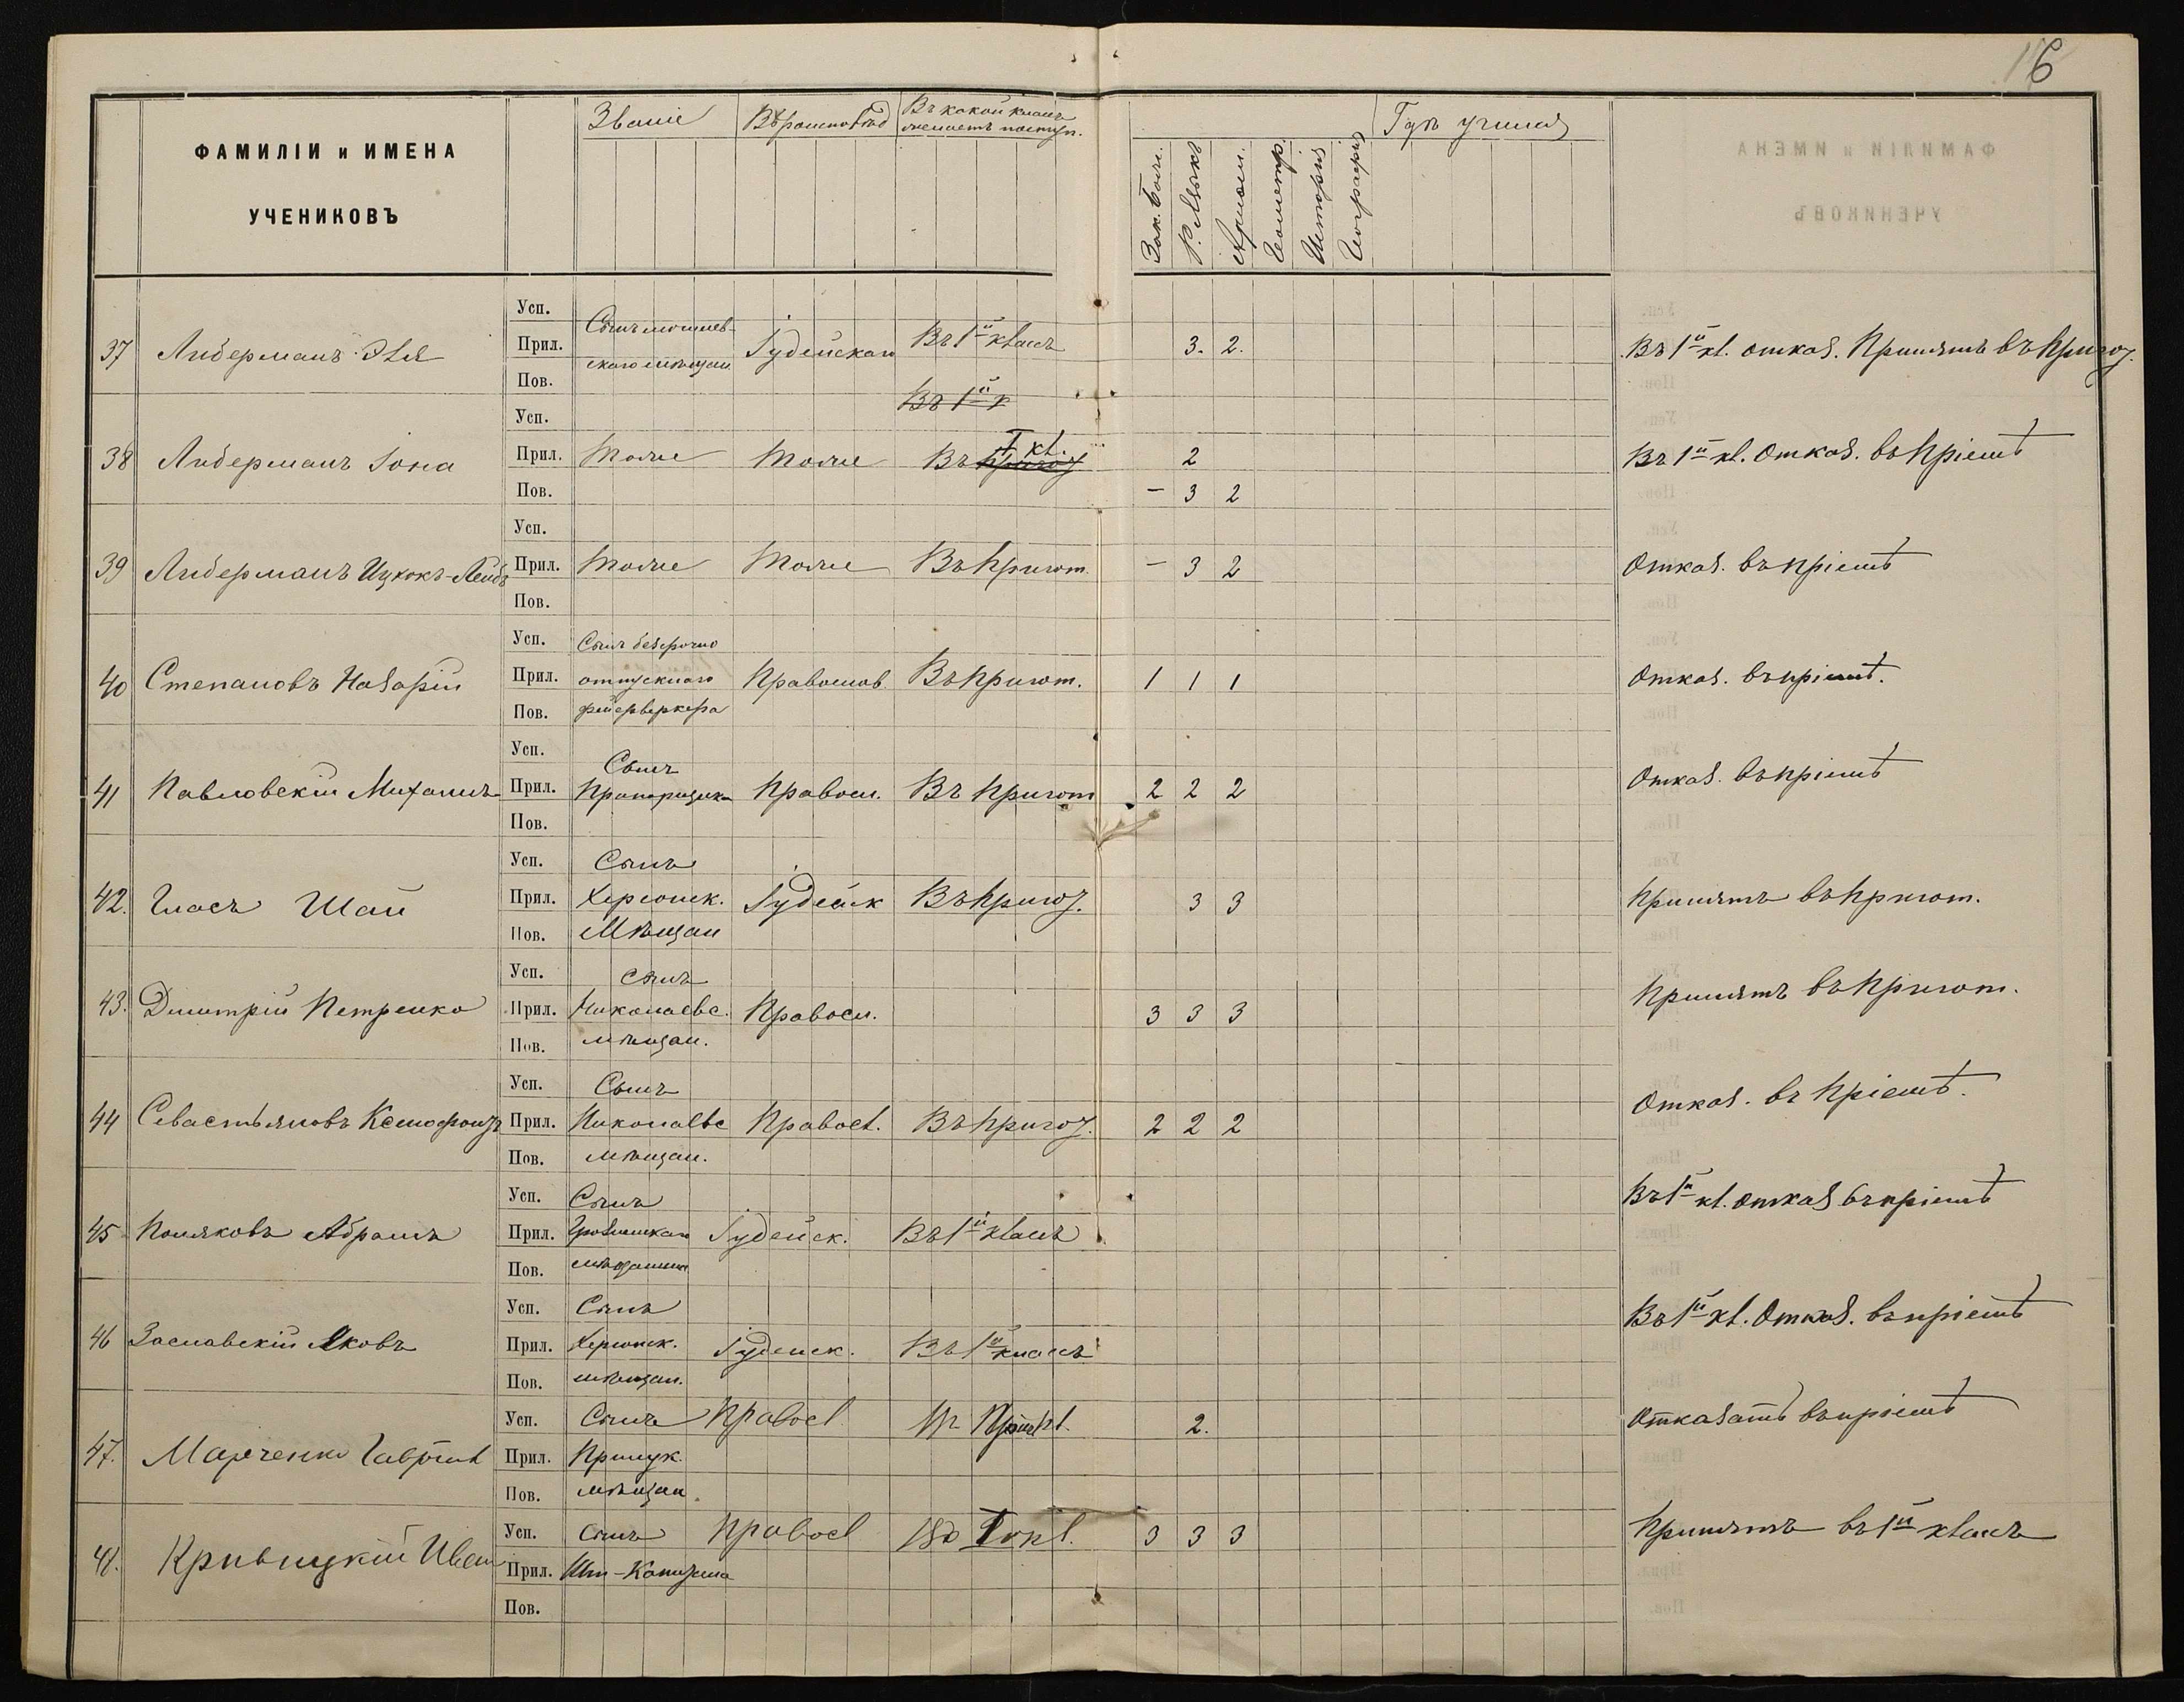 16
ФАМИЛІИ и ИМЕНА
УЧЕНИКОВЪ
Званіе
Вѣроисповѣд
Въ какой классъ
желаетъ поступ.
Зак. Бож.
Р. Языкъ
Ариѳм.
Геометр.
Исторія
Географія
Гдѣ учился
Усп.
37 Либерманъ Эля Прил. Сынъ могилев-
скаго мѣщан. Іудейскаго Въ 1й классъ 3. 2. Въ 1й кл. отказ. Принятъ въ Пригот.
Пов.
Въ 1й к
Усп.
38 Либерманъ Іона Прил. Тоже Тоже Въ Пригот I кл. 2 Въ 1й кл. Отказ. въ Пріемѣ
Пов. - 3 2
Усп.
39 Либерманъ Ицхокъ-Лейбъ Прил. Тоже Тоже Въ Пригот. - 3 2 Отказ. въ пріемѣ
Пов.
Усп. Сынъ безсрочно
40 Степановъ Назарій Прил. отпускнаго Православ. Въ Пригот. 1 1 1 Отказ. въ пріемѣ.
Пов. фейерверкера
Усп. Сынъ
41 Павловскій Михаилъ Прил. Прапорщика Правосл. Въ Пригот 2 2 2 Отказ. въ пріемѣ
Пов.
Усп. Сынъ
42. Гласъ Шай Прил. Херсонск. Іудейск Въ Пригот. 3 3 Принятъ въ Пригот.
Пов. Мѣщан
Усп. Сынъ
43. Дмитрій Петренко Прил. Николаевс. Правосл. 3 3 3 Принятъ въ Пригот.
Пов. мѣщан.
Усп. Сынъ
44 Севастьяновъ Ксенофонтъ Прил. Николаевс Правосл. Въ Пригот. 2 2 2 Отказ. въ Пріемѣ.
Пов. мѣщан.
Усп. Сынъ
45 Поляковъ Абрамъ Прил. Іудейск. Въ 1й классъ Въ 1й кл. отказ въ пріемѣ
Пов. мѣщанина
Усп. Сынъ
46 Заславскій Яковъ Прил. Херсонск. Іудейск. Въ 1й классъ Въ 1й кл. Отказ. въ пріемѣ
Пов. мѣщан.
Усп. Сынъ Правосл 2. Отказать въ пріемѣ
47. Марченко Гавріил Прил. Прилук.
Пов. мѣщан.
Усп. Сынъ Правосл Во I кл. 3 3 3 Принятъ въ 1й классъ
48. Кривицкій Иван Прил. Шт-Капитана
Пов.